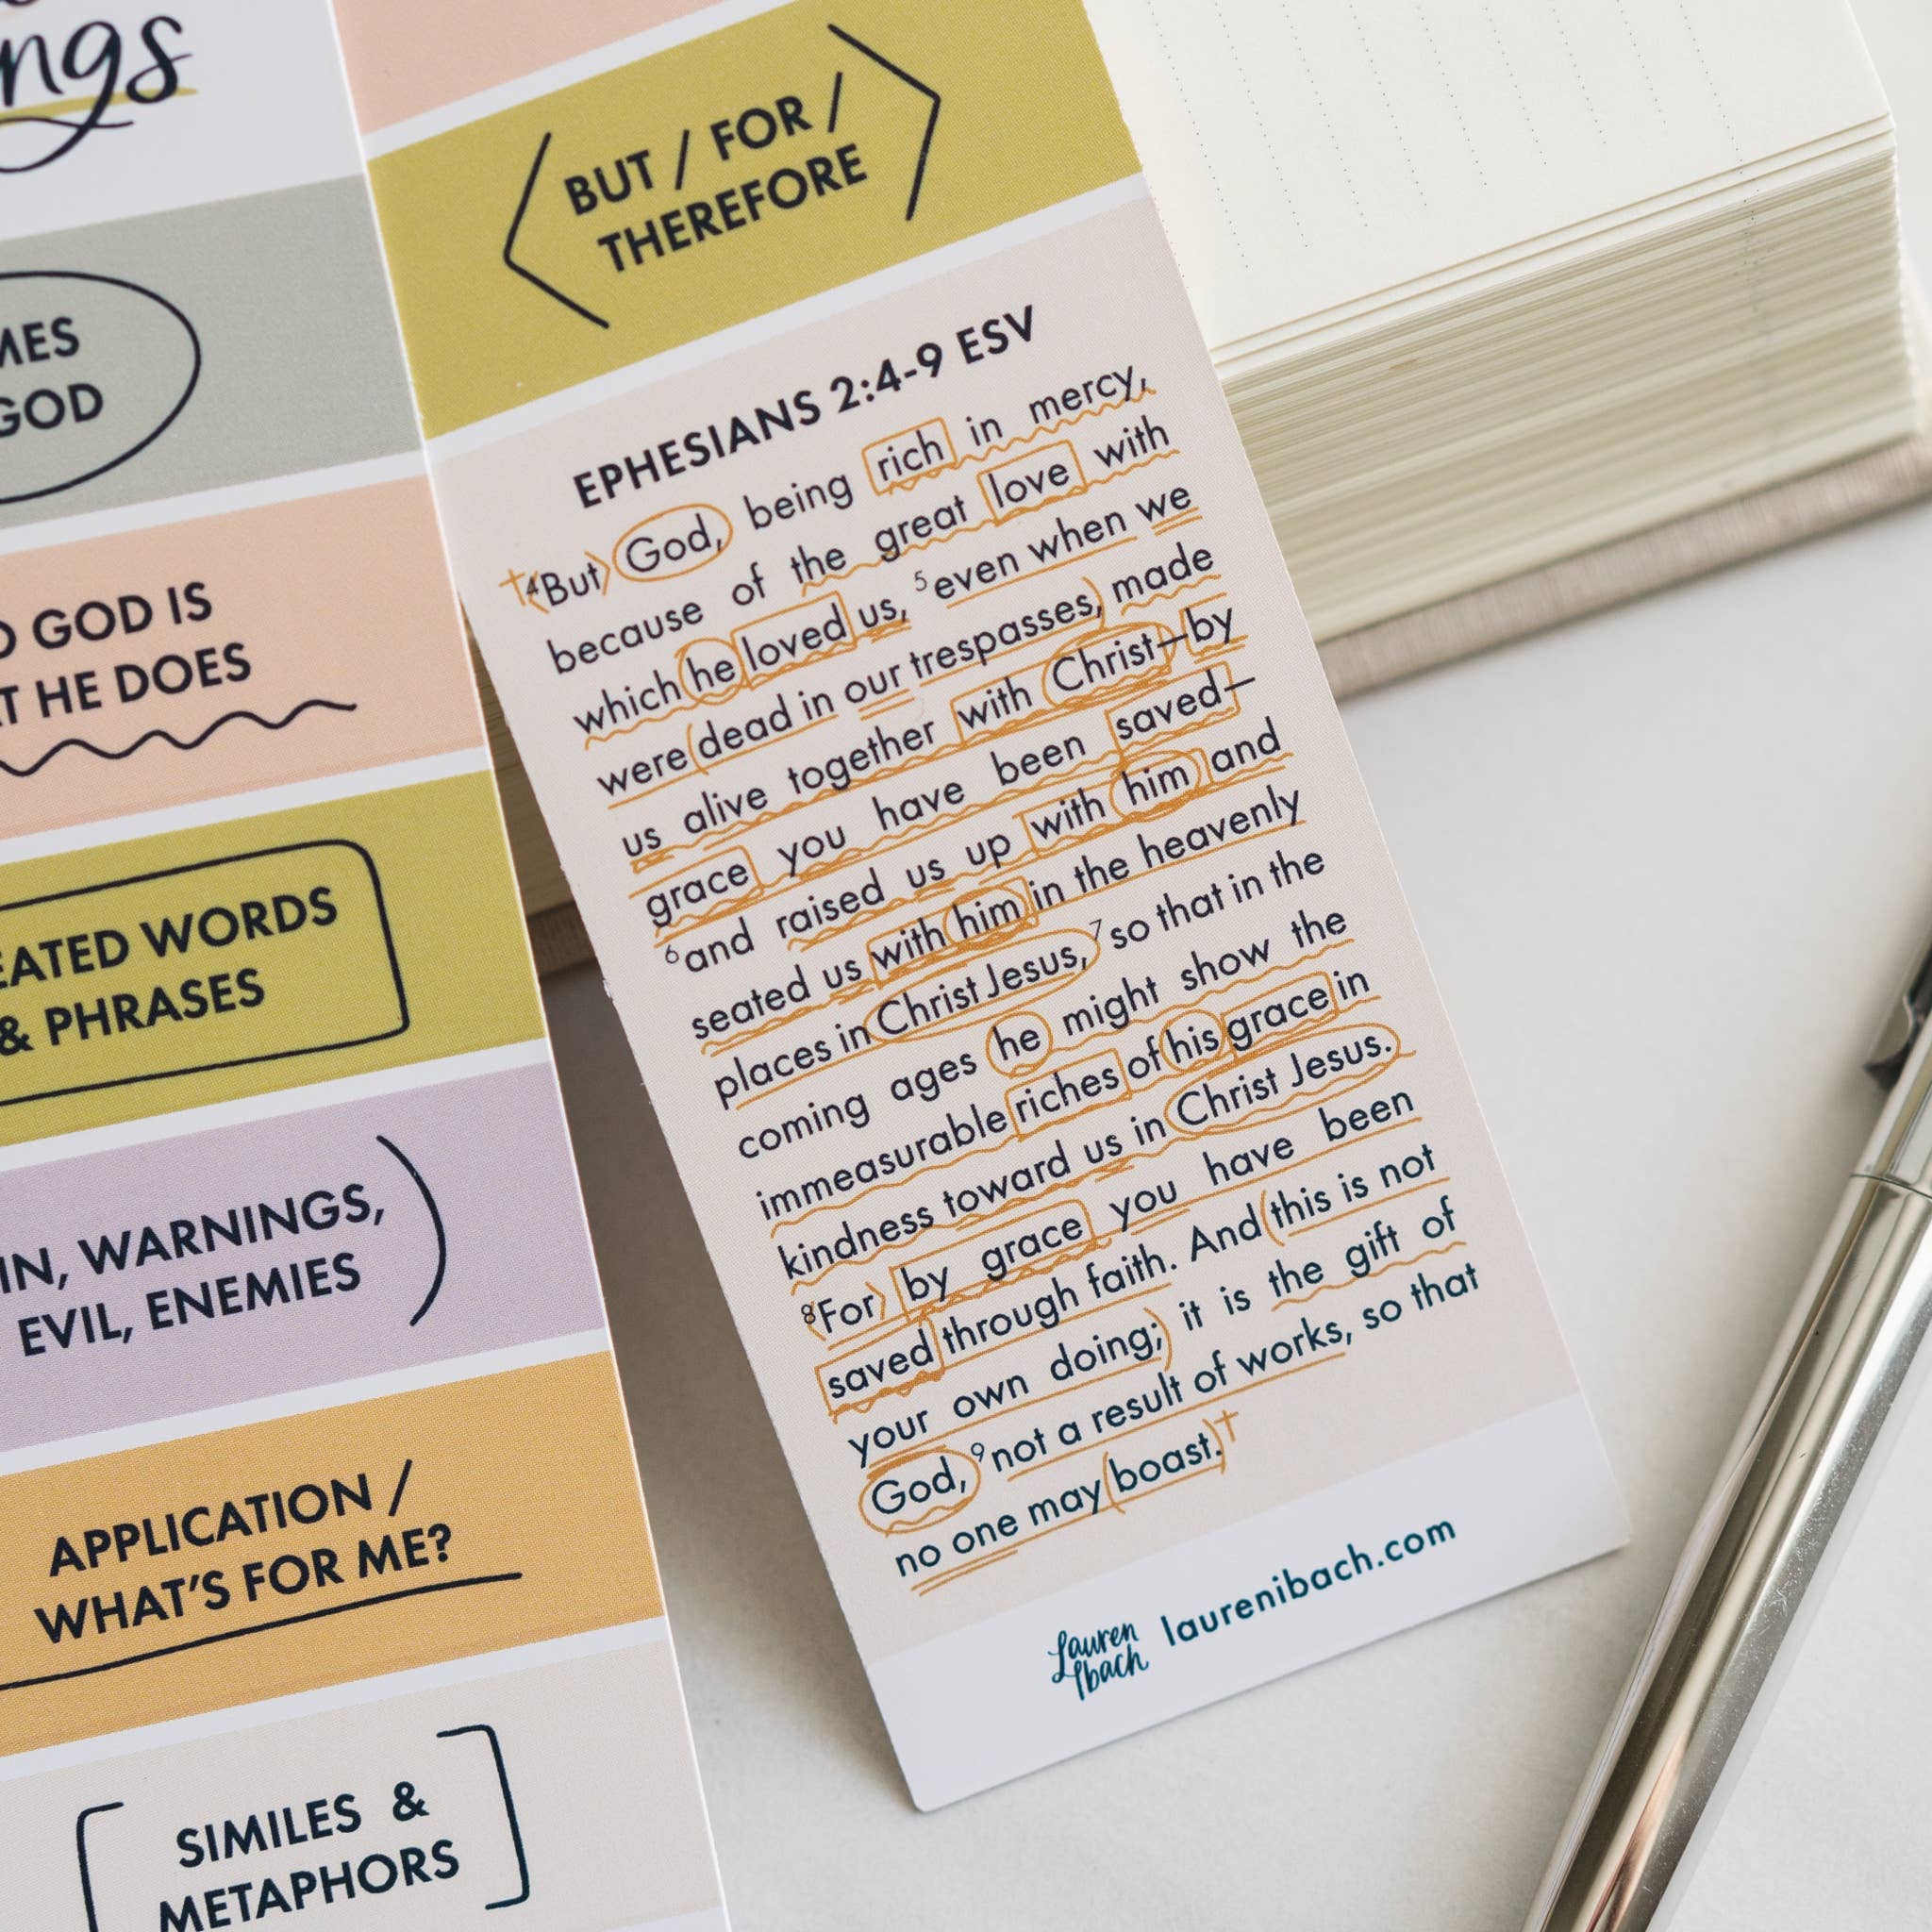 ngs
MES
GOD
D GOD IS
T HE DOES
EATED WORDS
& PHRASES
IN, WARNINGS,
EVIL, ENEMIES
APPLICATION /
WHAT'S FOR ME?
SIMILES &
METAPHORS
BUT / FOR /
THEREFORE
EPHESIANS 2:4-9 ESV
4But God, being rich in mercy,
because of the great love with
which he loved us, 5even when we
were dead in our trespasses, made
us alive together with Christ—by
grace you have been saved—
6and raised us up with him and
seated us with him in the heavenly
places in Christ Jesus, 7so that in the
coming ages he might show the
immeasurable riches of his grace in
kindness toward us in Christ Jesus.
8For by grace you have been
saved through faith. And this is not
your own doing; it is the gift of
God, 9not a result of works, so that
no one may boast.
Lauren
Ibach
laurenibach.com